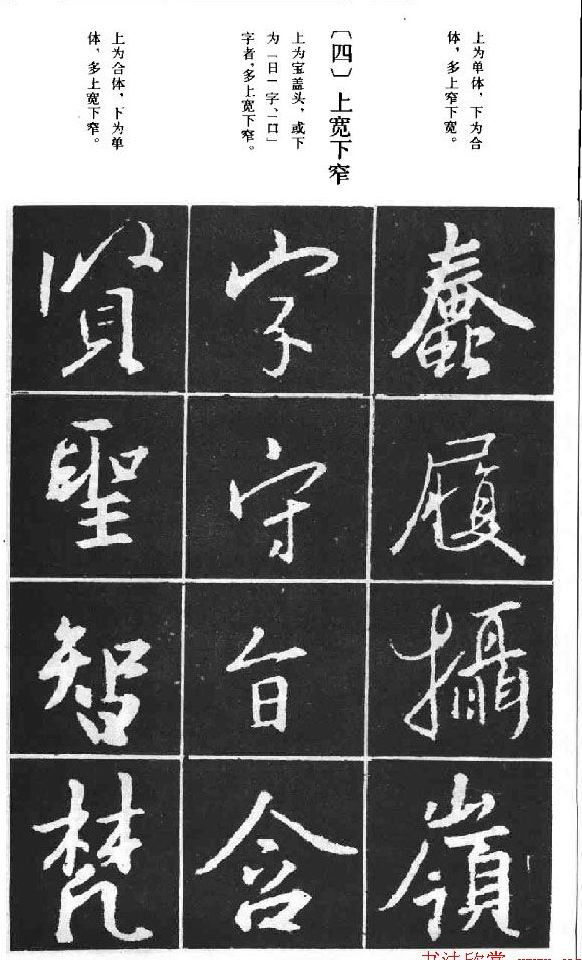 上为单体，下为合
体，多上窄下宽。
〔四〕上宽下窄
上为宝盖头，或下
为「日」字、「口」
字者，多上宽下窄。
上为合体，下为单
体，多上宽下窄。
蠢
履
攝
嶺
字
守
旨
含
賢
聖
智
梵
书法欣赏